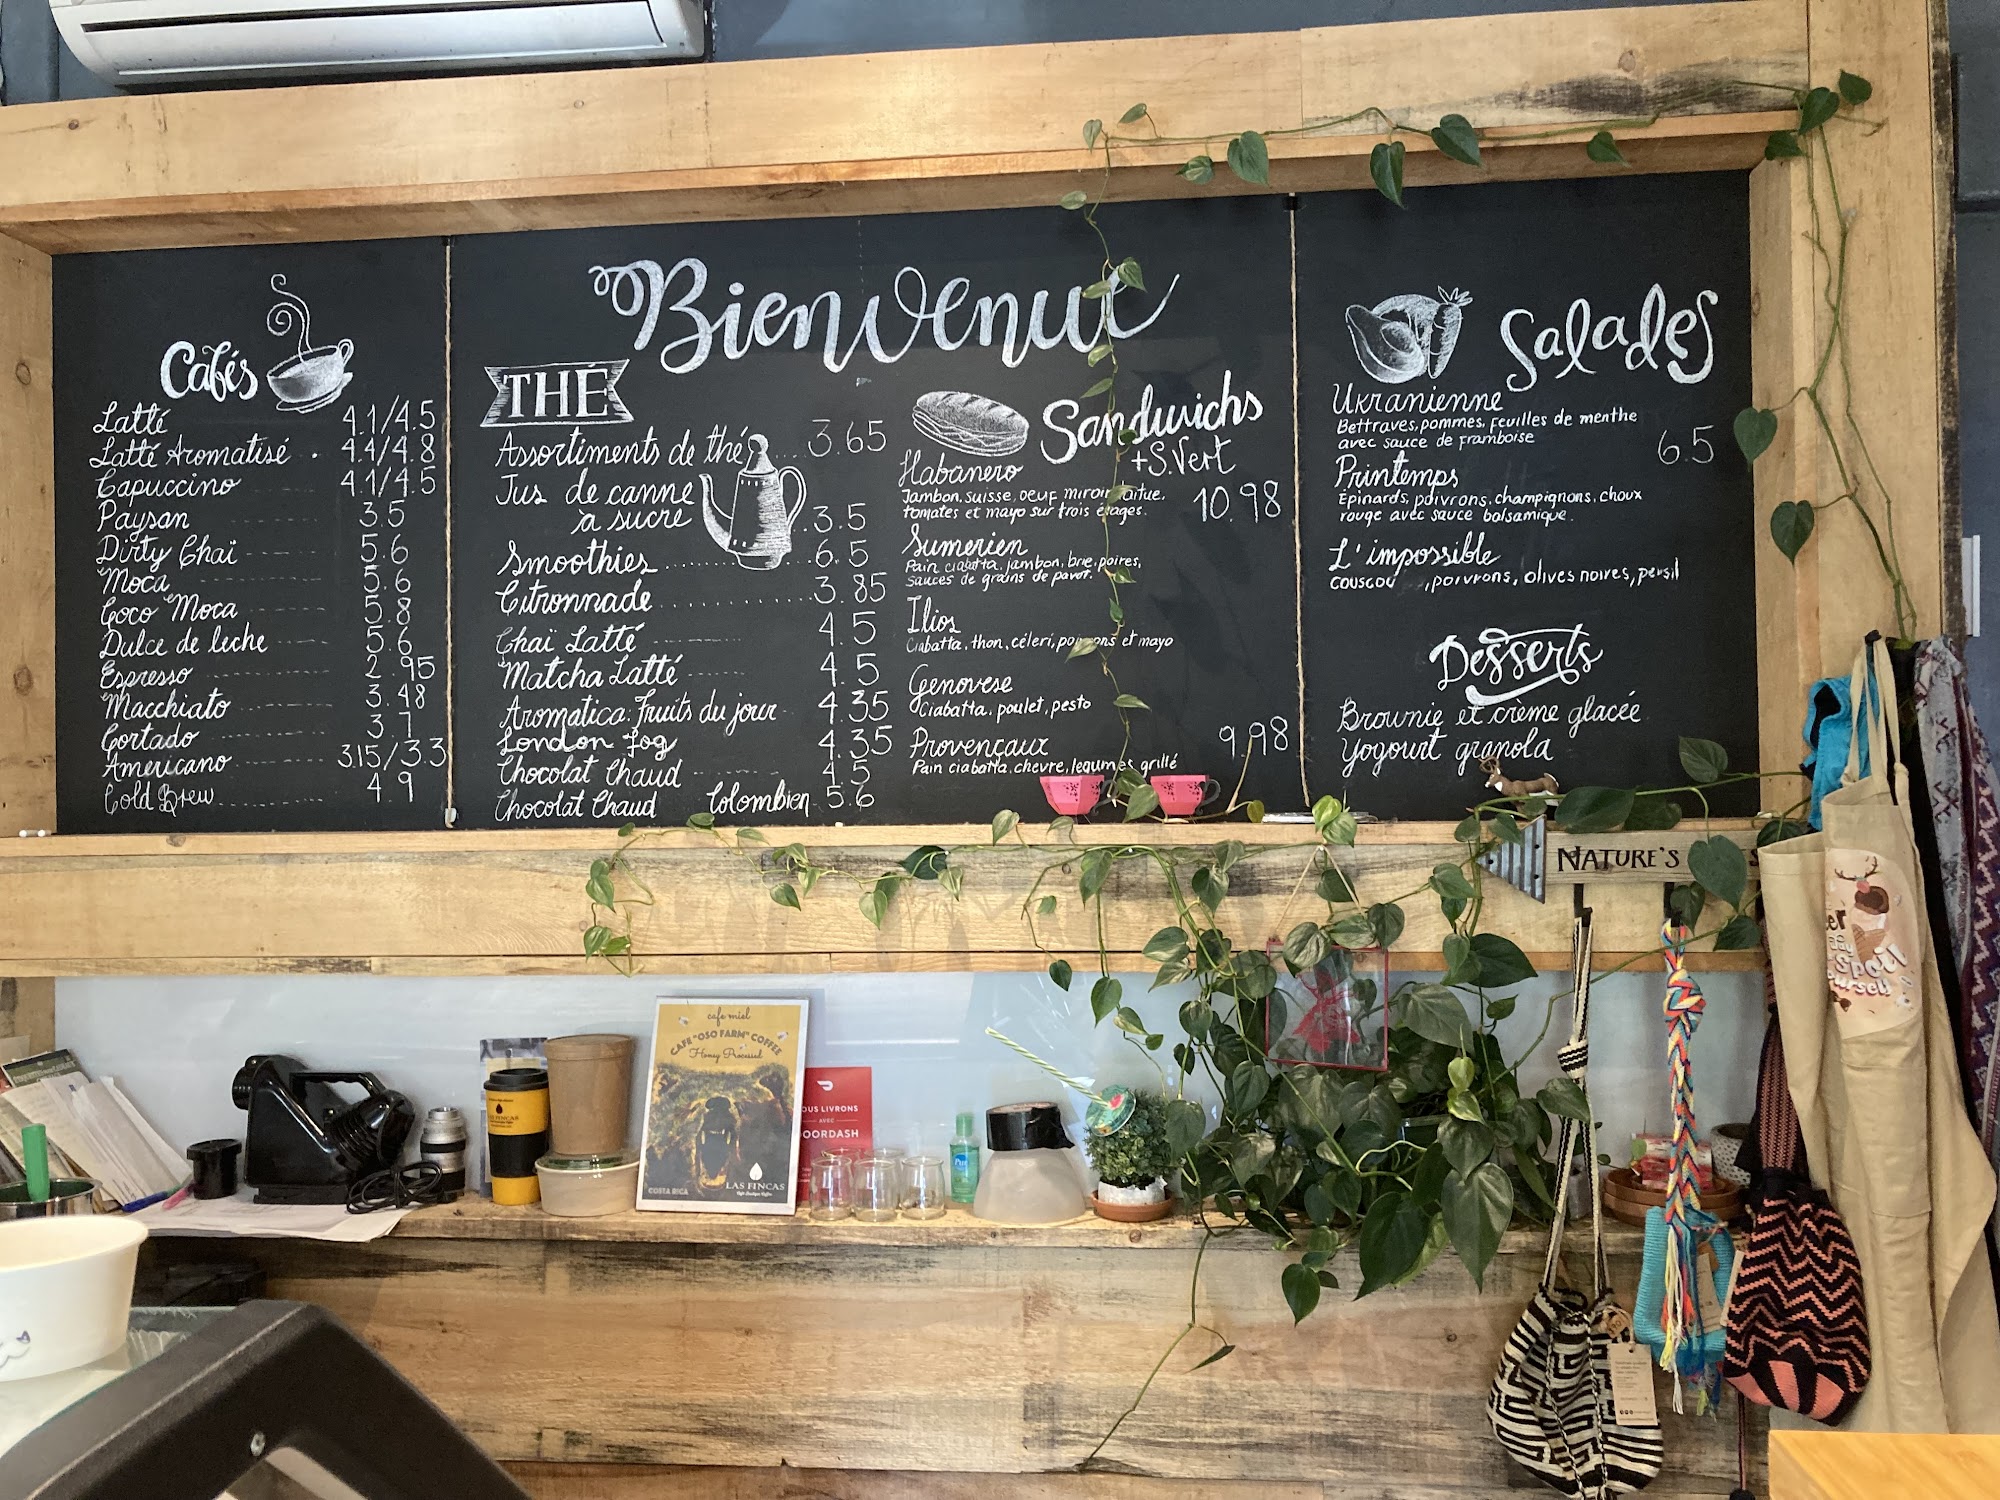 Bienvenue
Cafés
Latté 4.1/4.5
Latté Aromatisé . 4.4/4.8
Capuccino 4.1/4.5
Paysan 3.5
Dirty Chaï 5.6
Moca 5.6
Coco Moca 5.8
Dulce de leche 5.6
Espresso 2.95
Macchiato 3.48
Cortado 3.7
Americano 3.15/3.3
Cold Brew 4.9
THÉ
Assortiments de thé 3.65
Jus de canne
à sucre 3.5
Smoothies 6.5
Citronnade 3.85
Chaï Latté 4.5
Matcha Latté 4.5
Aromatica: Fruits du jour 4.35
London Fog 4.35
Chocolat Chaud 4.5
Chocolat Chaud Colombien 5.6
Sandwichs
+S.Vert
Habanero
Jambon, suisse, oeuf miroir, laitue, 10.98
tomates et mayo sur trois étages.
Sumerien
Pain ciabatta, jambon, brie, poires,
sauces de grains de pavot.
Ilios
Ciabatta, thon, céleri, poivrons et mayo
Genovese
Ciabatta, poulet, pesto
Provençaux 9.98
Pain ciabatta, chevre, legumes grillé
Salades
Ukranienne
Bettraves, pommes, feuilles de menthe
avec sauce de framboise 6.5
Printemps
Épinards, poivrons, champignons, choux
rouge avec sauce balsamique.
L'impossible
couscou , poivrons, olives noires, persil
Desserts
Brownie et crème glacée
Yogourt granola
NATURE'S
cafe miel
CAFE "OSO FARM" COFFEE
Honey Processed
COSTA RICA
LAS FINCAS
LAS FINCAS
OUS LIVRONS
AVEC
DOORDASH
Spoil